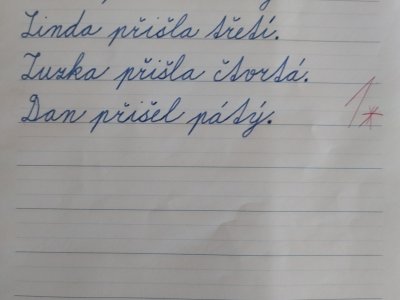 Linda přišla třetí.
Zuzka přišla čtvrtá.
Dan přišel pátý.
1*